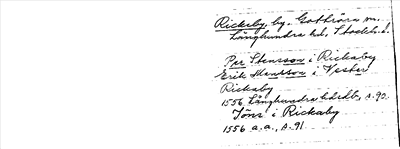 Rickeby by, Gottröra sn.
Långhundra hd, Stockh. l.
Per Stensson i Rickaby
Erik Mansson i Vester
Rickaby
1556 Långhundra hdsdb, s. 90.
Jöns i Rickaby
1556 a.a., s. 91